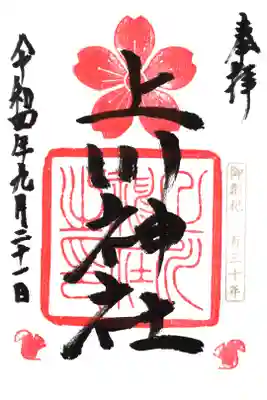 奉拝
御創祀 百三十年
上川神社
令和四年九月二十一日